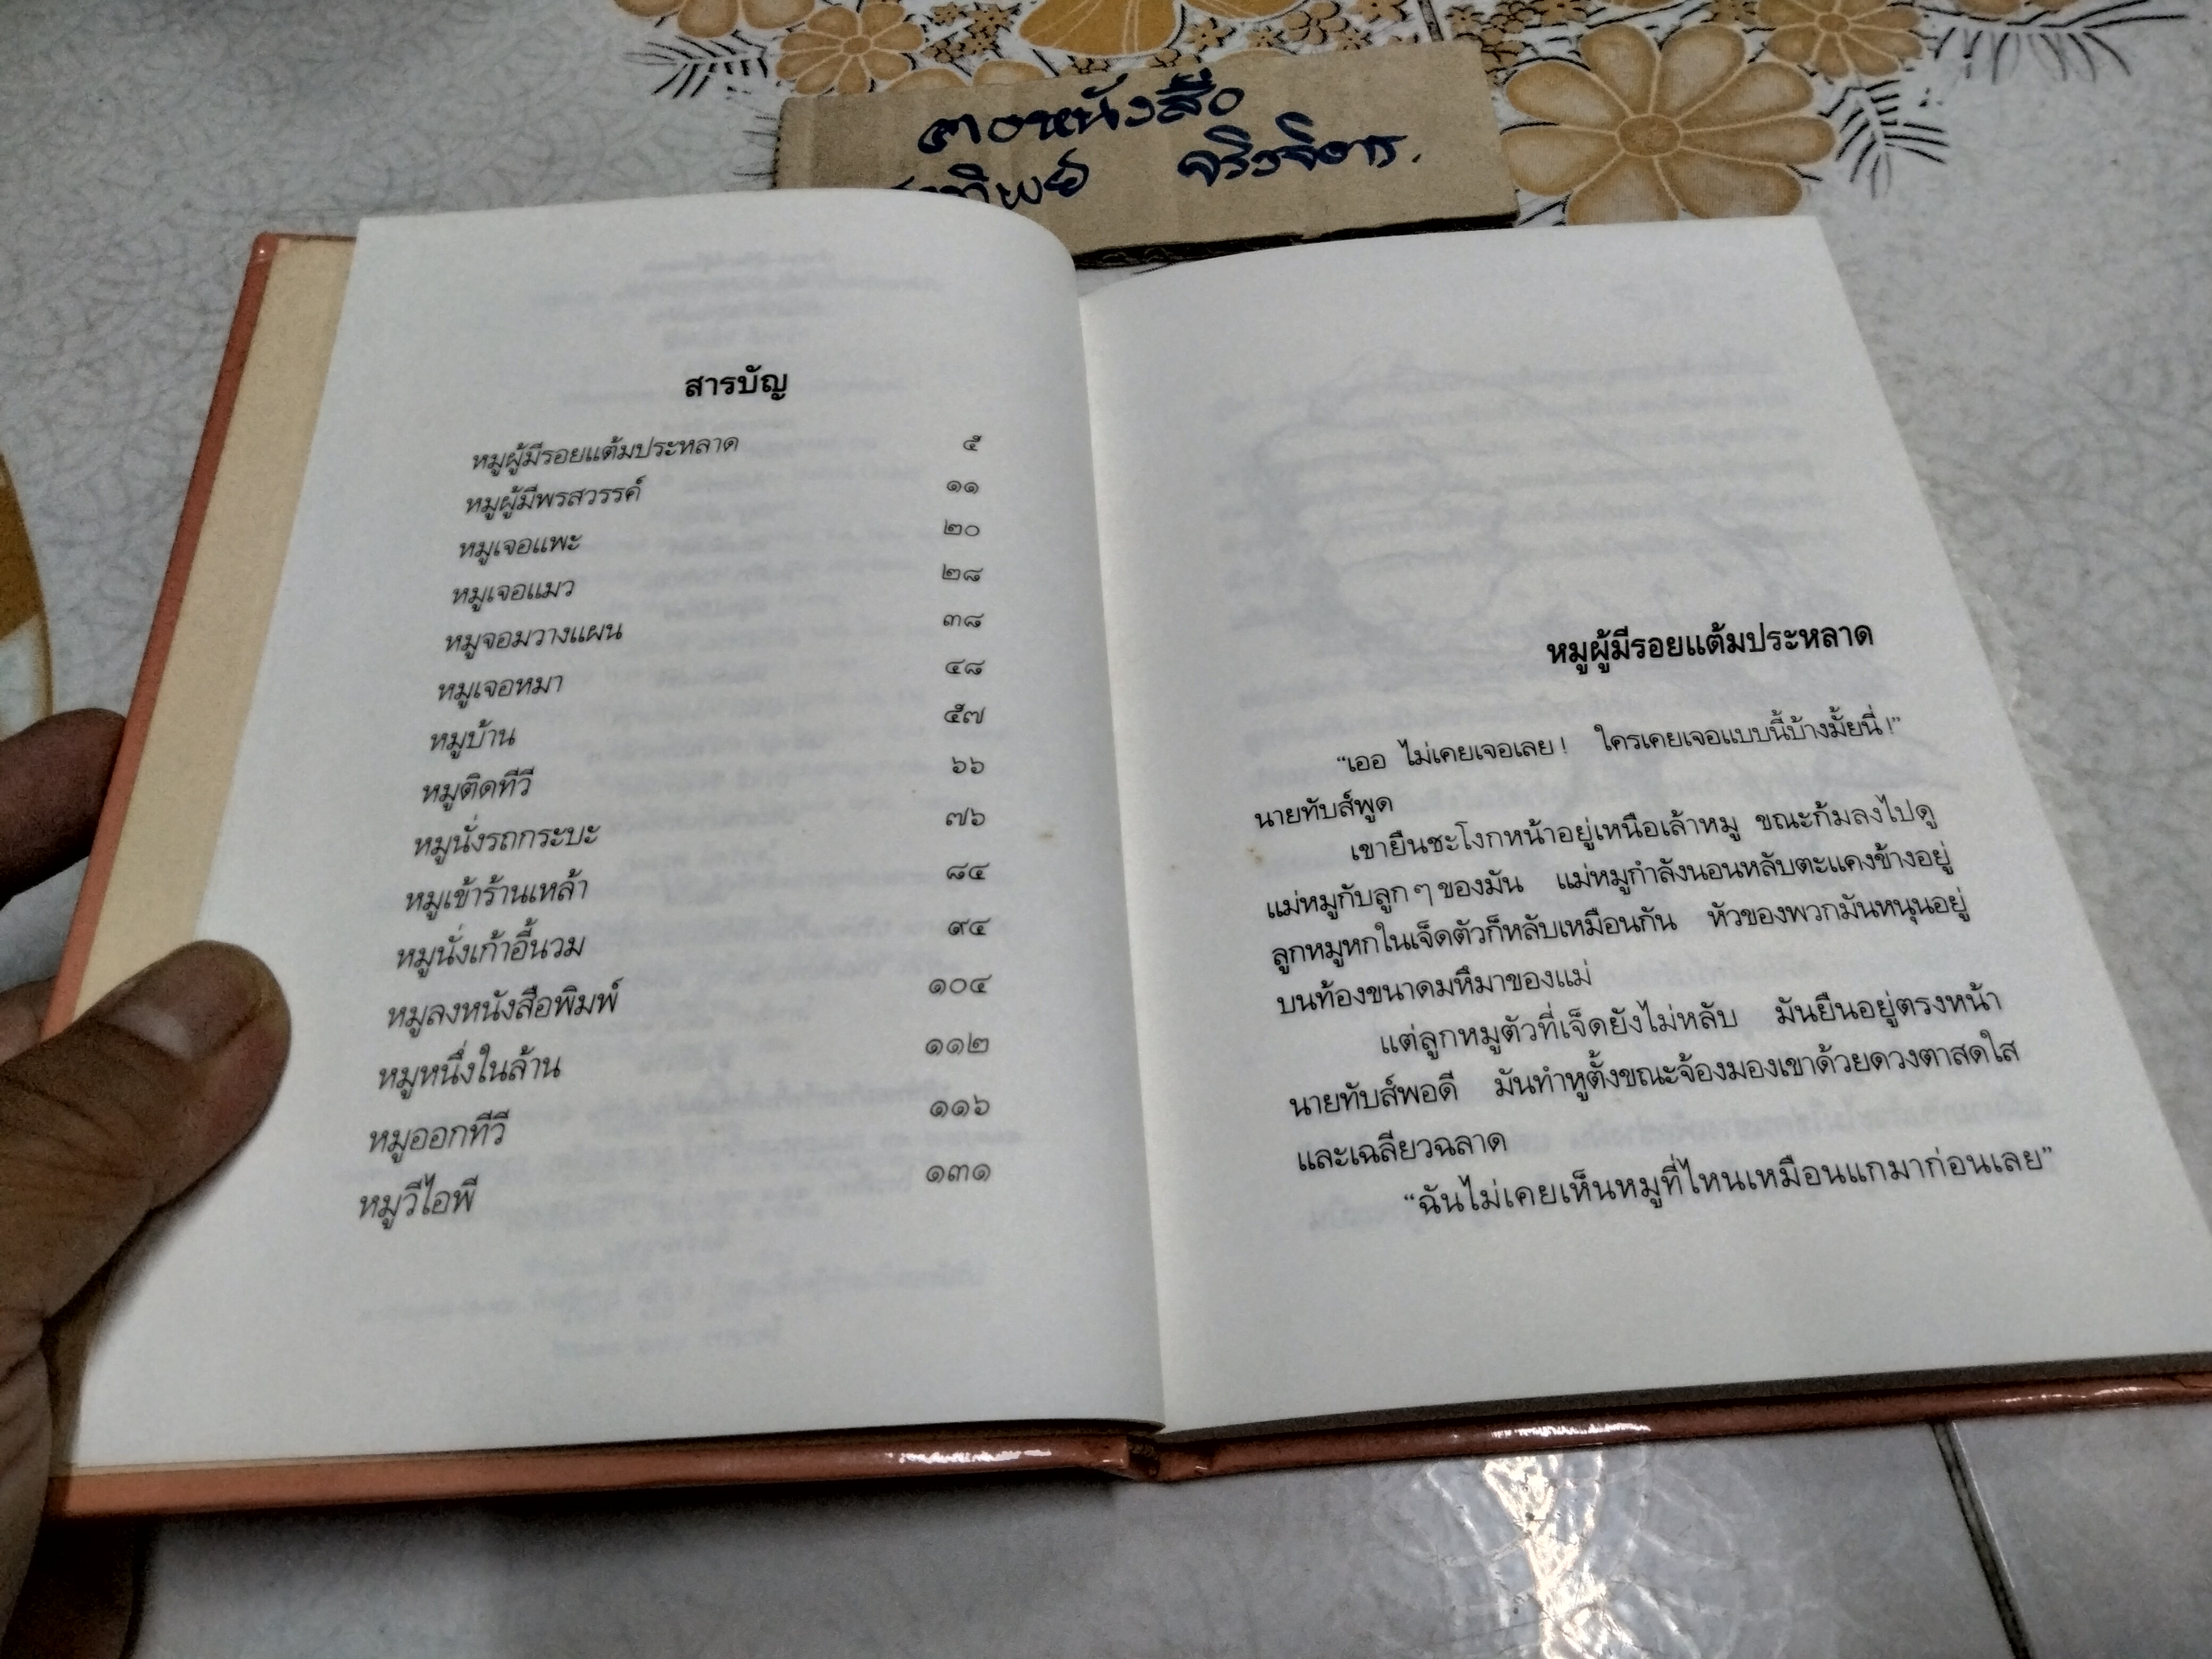 กองหนังสือ
จริงจิตร.
สารบัญ
หมูผู้มีรอยแต้มประหลาด ๕
หมูผู้มีพรสวรรค์ ๑๑
หมูเจอแพะ ๒๐
หมูเจอแมว ๒๘
หมูจอมวางแผน ๓๘
หมูเจอหมา ๔๘
หมูบ้าน ๕๗
หมูติดทีวี ๖๖
หมูนั่งรถกระบะ ๗๖
หมูเข้าร้านเหล้า ๘๔
หมูนั่งเก้าอี้นวม ๙๔
หมูลงหนังสือพิมพ์ ๑๐๔
หมูหนึ่งในล้าน ๑๑๒
หมูออกทีวี ๑๑๖
หมูวีไอพี ๑๓๑
หมูผู้มีรอยแต้มประหลาด
“เออ ไม่เคยเจอเลย! ใครเคยเจอแบบนี้บ้างมั้ยนี่!”
นายทับส์พูด
เขายืนชะโงกหน้าอยู่เหนือเล้าหมู ขณะก้มลงไปดู
แม่หมูกับลูก ๆ ของมัน แม่หมูกำลังนอนหลับตะแคงข้างอยู่
ลูกหมูหกในเจ็ดตัวก็หลับเหมือนกัน หัวของพวกมันหนุนอยู่
บนท้องขนาดมหึมาของแม่
แต่ลูกหมูตัวที่เจ็ดยังไม่หลับ มันยืนอยู่ตรงหน้า
นายทับส์พอดี มันทำหูตั้งขณะจ้องมองเขาด้วยดวงตาสดใส
และเฉลียวฉลาด
“ฉันไม่เคยเห็นหมูที่ไหนเหมือนแกมาก่อนเลย”